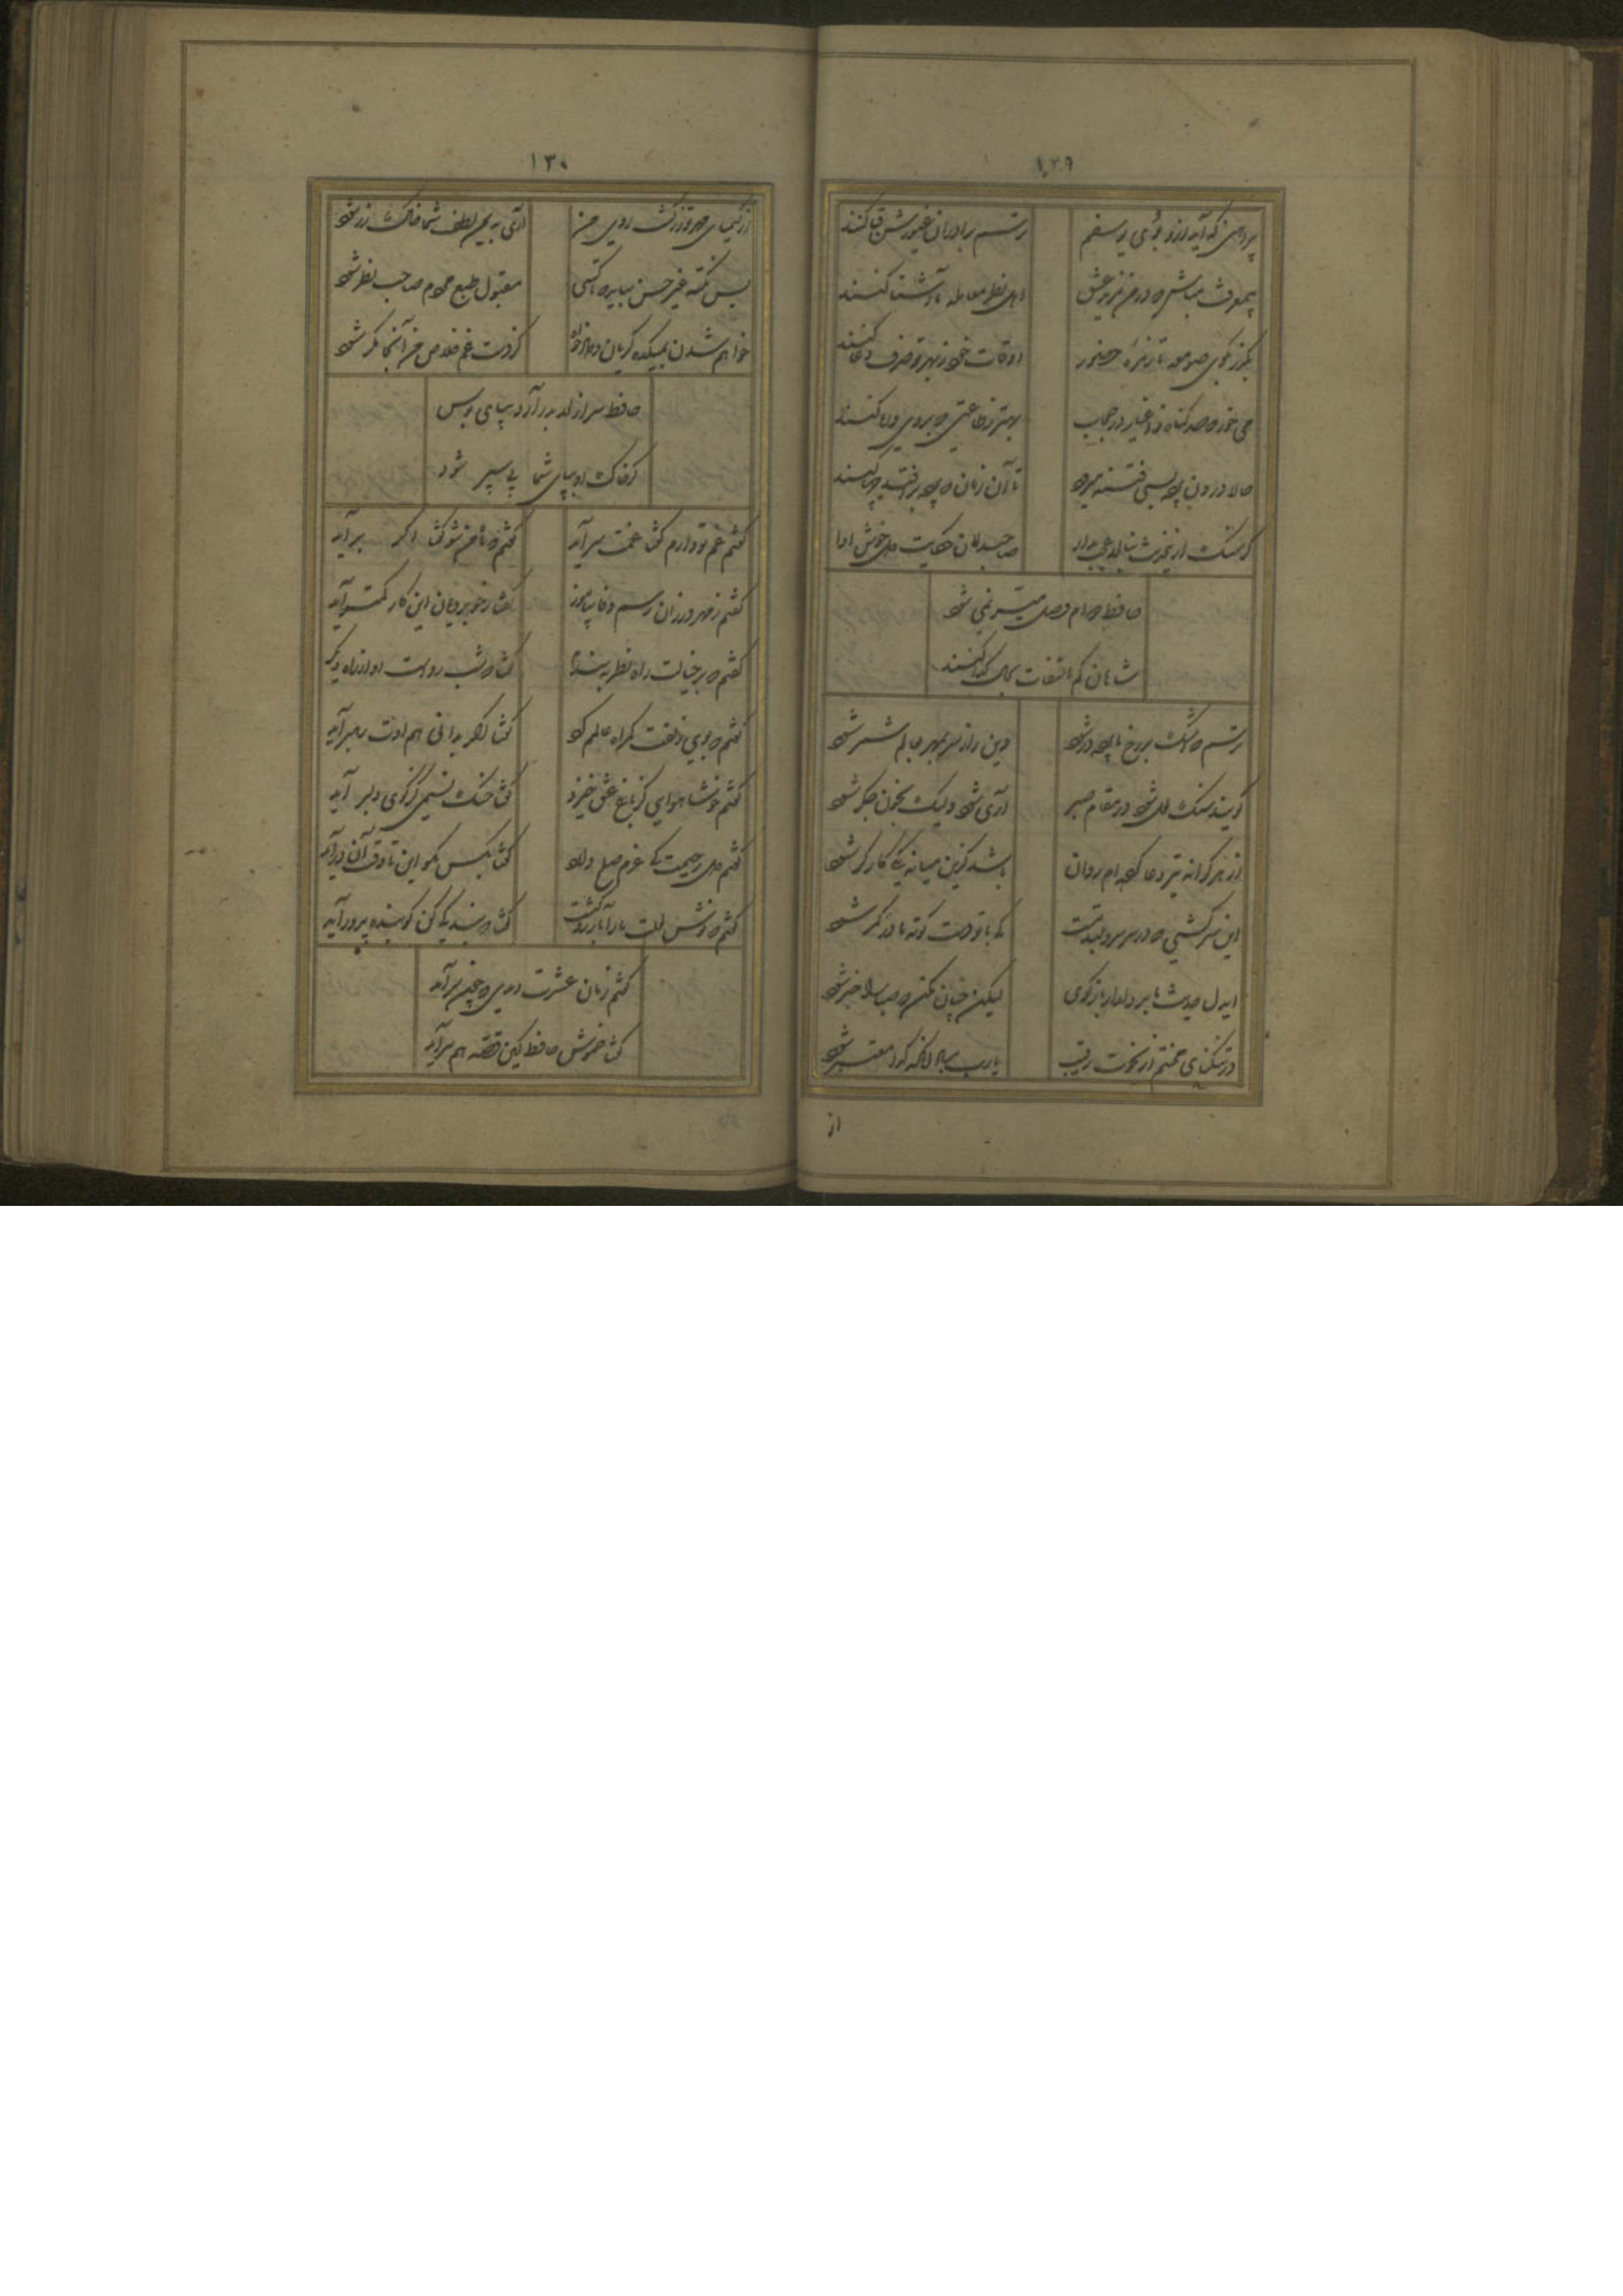 ۱۲۹
پیراهنی که آید ازو بوی یوسفم
ترسم برادران غیورش قبا کنند
بی معرفت مباش که در من یزید عشق
اهل نظر معامله با آشنا کنند
بگذر بکوی میکده تا زمره حضور
اوقات خود ز بهر تو صرف دعا کنند
می خور که صد گناه ز اغیار در حجاب
بهتر ز طاعتی که بروی و ریا کنند
حالا درون پرده بسی فتنه میرود
تا آن زمان که پرده برافتد چها کنند
گر سنگ ازین حدیث بنالد عجب مدار
صاحبدلان حکایت دل خوش ادا
حافظ دوام وصل میسر نمی شود
شاهان کم التفات بحال گدا کنند
ترسم که اشک بر رخ ما پرده در شود
وین راز سر بمهر بعالم سمر شود
گویند سنگ لعل شود در مقام صبر
آری شود ولیک بخون جگر شود
از هر کرانه تیر دعا کرده ام روان
باشد کزین میانه یکی کارگر شود
این سرکشی که در سر سرو بلند تست
کی با تو دست کوته ما در کمر شود
ایدل حدیث ما بر دلدار بازگوی
لیکن چنان مکن که صبا را خبر شود
در تنگنای حیرتم از نخوت رقیب
یارب مباد آنکه گدا معتبر شود
از
۱۳۰
از کیمیای مهر تو زر گشت روی من
آری به یمن لطف شما خاک زر شود
بس نکته غیر حسن بباید که تا کسی
مقبول طبع مردم صاحب نظر شود
خواهم شدن بمیکده گریان و دادخواه
کز دست غم خلاص من آنجا مگر شود
حافظ سر از لحد بدر آرد بپای بوس
گر خاک او بپای شما پی سپر شود
گفتم غم تو دارم گفتا غمت سر آید
گفتم که ماه من شو گفت اگر برآید
گفتم ز مهرورزان رسم وفا بیاموز
گفتا ز خوبرویان این کار کمتر آید
گفتم که بر خیالت راه نظر ببندم
گفتا که شب روست او از راه دیگر
گفتم که بوی زلفت گمراه عالمم کرد
گفتا اگر بدانی هم اوت رهبر آید
گفتم خوشا هوایی کز باغ عشق خیزد
گفتا خنک نسیمی کز کوی دلبر آید
گفتم دل رحیمت کی عزم صلح دارد
گفتا بکس مگو این تا وقت آن درآید
گفتم که نوش لعلت ما را بآرزو کشت
گفتا تو بندگی کن کو بنده پرور آید
گفتم زمان عشرت دیدی که چون سر آمد
گفتا خموش حافظ کین قصه هم سر آید